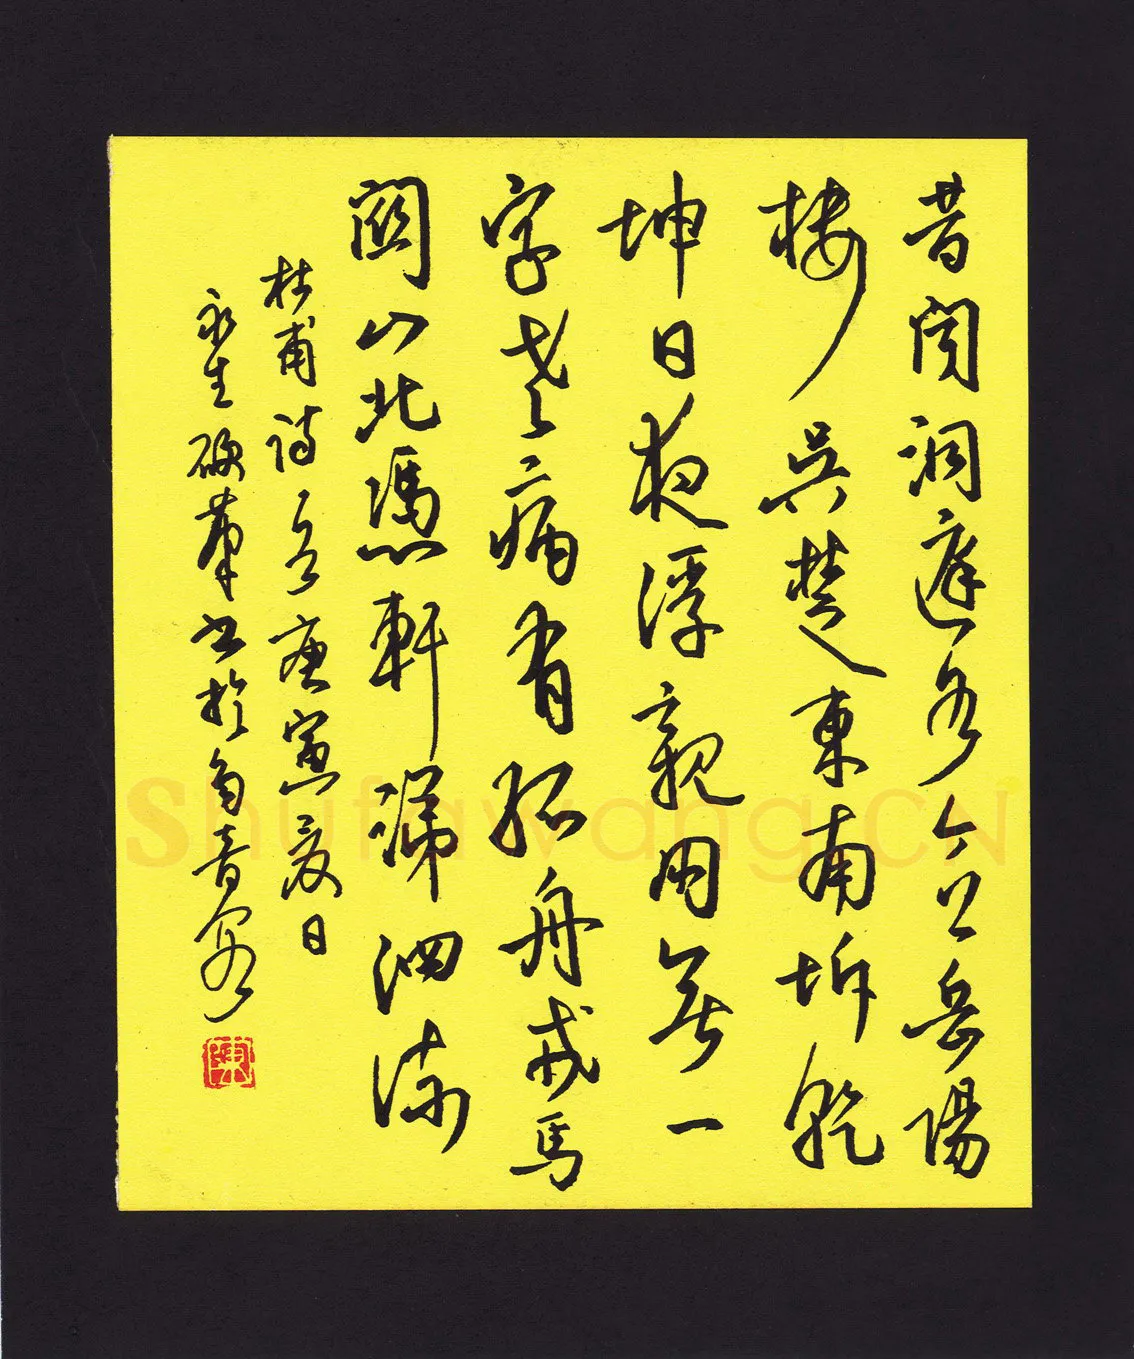 昔聞洞庭水今上岳陽
樓吳楚東南坼乾
坤日夜浮親朋無一
字老病有孤舟戎馬
關山北憑軒涕泗流
杜甫诗一首庚寅夏日
永生硬筆书於音
Shufawang.CN